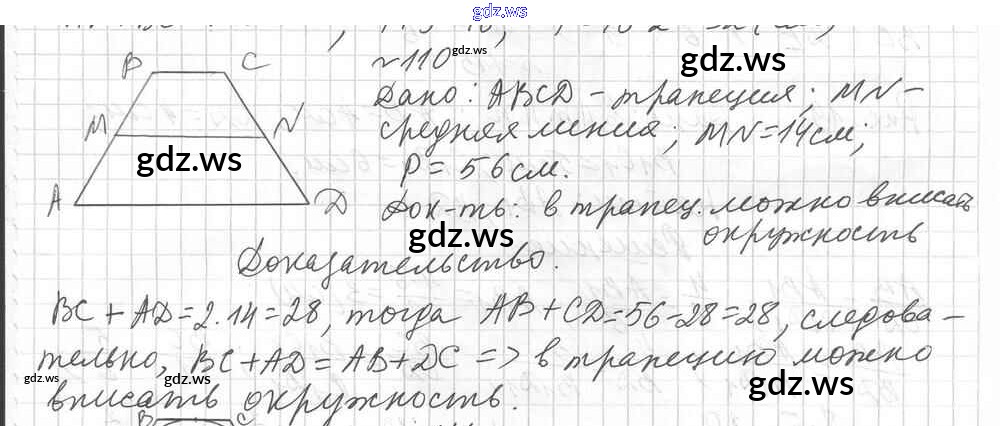 gdz.ws
№110
gdz.ws
gdz.ws
B C
Дано: ABCD - трапеция; MN -
M N
средняя линия; MN=14см;
gdz.ws
P=56см.
A D
Док-ть: в трапец. можно вписать
окружность
gdz.ws
Доказательство.
BC+AD=2.14=28, тогда AB+CD=56-28=28, следова-
тельно, BC+AD=AB+DC => в трапецию можно
gdz.ws gdz.ws gdz.ws
вписать окружность.
B C